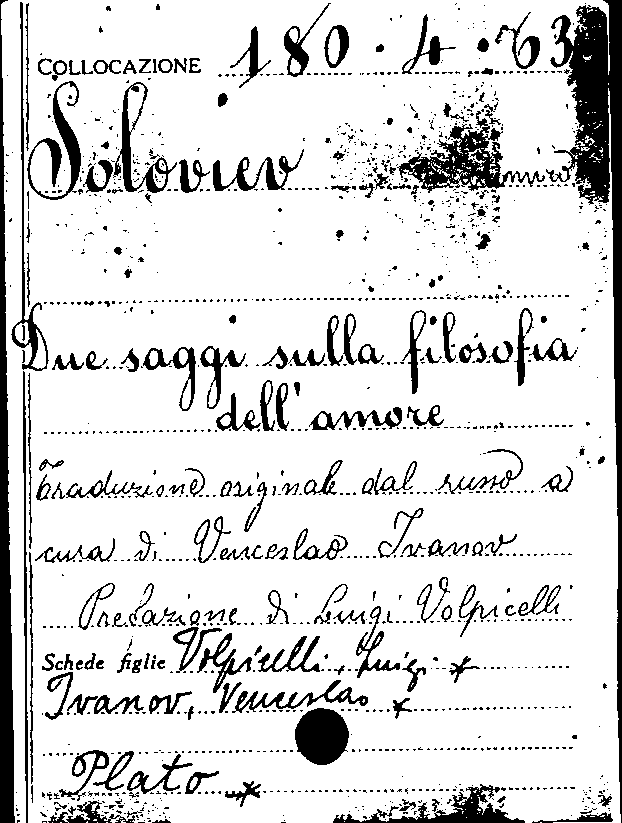 COLLOCAZIONE 180.4.63
Soloviev
Due saggi sulla filosofia
dell'amore
Traduzione originale dal russo a
cura di Venceslao Ivanov
Prefazione di Luigi Volpicelli
Schede figlie Volpicelli, Luigi *
Ivanov, Venceslao *
Plato *